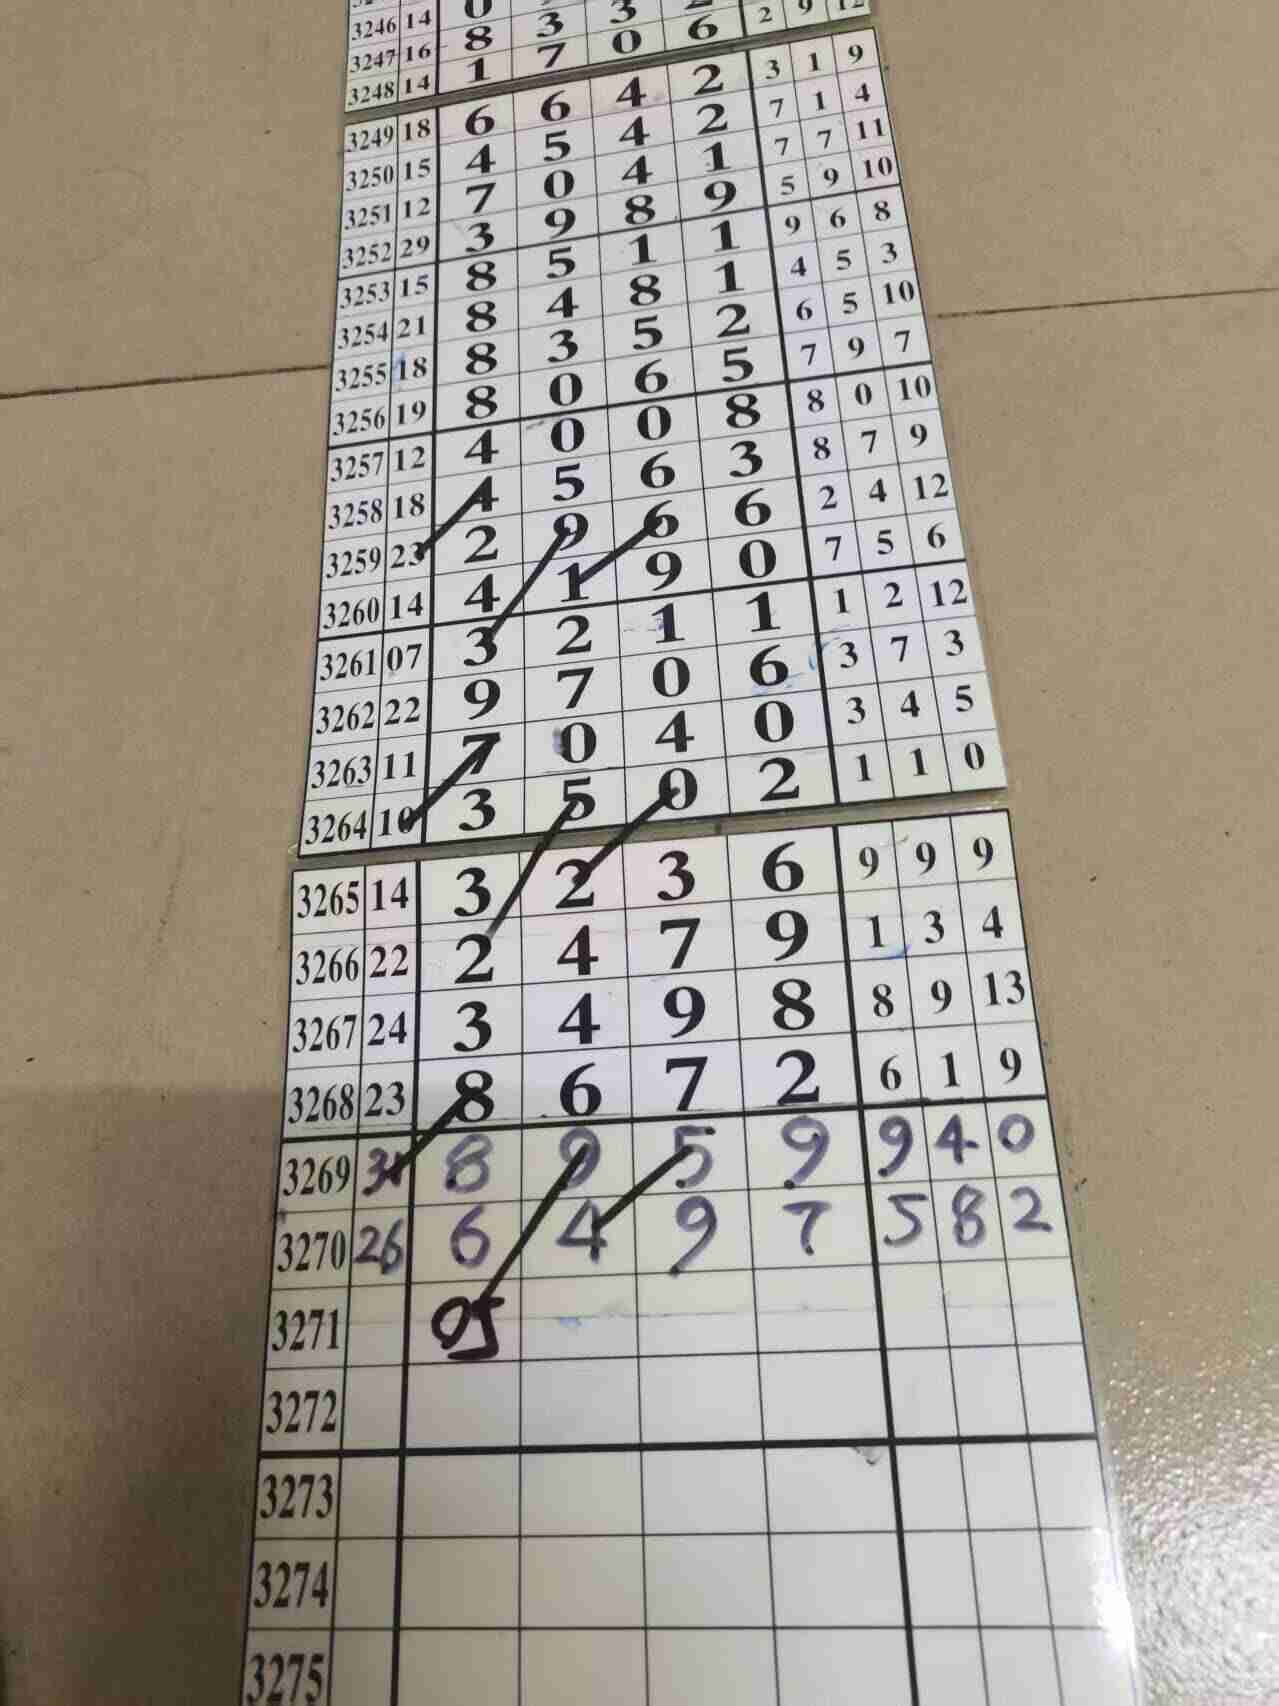 3246 14 0
3247 16 8 3 3 2 9 12
3248 14 1 7 0 6
3249 18 6 6 4 2 3 1 9
3250 15 4 5 4 2 7 1 4
3251 12 7 0 4 1 7 7 11
3252 29 3 9 8 9 5 9 10
3253 15 8 5 1 1 9 6 8
3254 21 8 4 8 1 4 5 3
3255 18 8 3 5 2 6 5 10
3256 19 8 0 6 5 7 9 7
3257 12 4 0 0 8 8 0 10
3258 18 4 5 6 3 8 7 9
3259 23 2 9 6 6 2 4 12
3260 14 4 1 9 0 7 5 6
3261 07 3 2 1 1 1 2 12
3262 22 9 7 0 6 3 7 3
3263 11 7 0 4 0 3 4 5
3264 10 3 5 0 2 1 1 0
3265 14 3 2 3 6 9 9 9
3266 22 2 4 7 9 1 3 4
3267 24 3 4 9 8 8 9 13
3268 23 8 6 7 2 6 1 9
3269 31 8 9 5 9 9 4 0
3270 26 6 4 9 7 5 8 2
3271 05
3272
3273
3274
3275